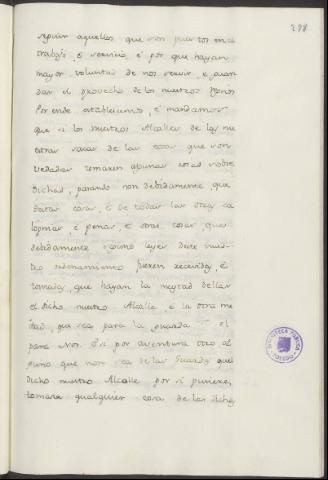 298
seguir aquellos que son puestos en el
trabajo, e servicio, e por que hayan
mayor voluntad de nos servir, e guar
dar el provecho de los nuestros Regnos
Por ende establecemos, e mandamos
que si los nuestros Alcalles de los me
sacar de las cosas que son
vedadas tomaren algunas cosas sobre
dichas, pasando non debidamente, que
destas cosas, e de todas las otras ca
lopnias, e penas, e otras cosas que
debidamente como leyes deste nues
tro ordenamiento fueren recevidas, e
tomadas, que hayan la meytad dellas
el dicho nuestro Alcalle, e la otra me
tad, que sea para la guarda el
para Nos. E si por aventura otro al
guno que non sea de las Guardas quel
dicho nuestro Alcalle por si pusiere,
tomare qualquier cosa de las dichas
BIBLIOTECA PUBLICA
TOLEDO